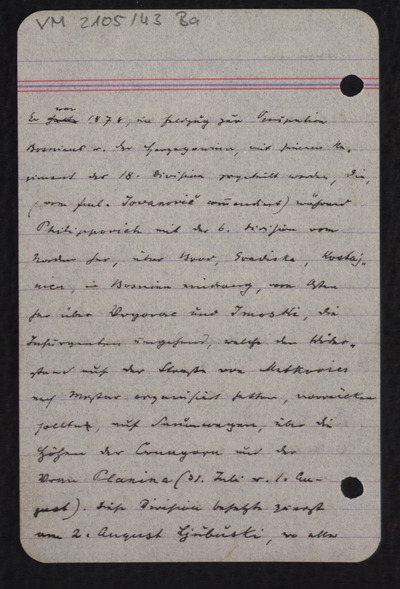 VM 2105/43 Ba
war
Er hatte 1878, im Feldzug zur Occupation
Bosniens u. der Herzegowina, mit seinem Re-
giment der 18. Division zugeteilt worden, die,
(vom Fml. Jovanović commandiert) während
Philippovich mit der 6. Division vom
Norden her, über Brod, Gradiska, Kostaj-
nica, in Bosnien eindrang, vom Westen
her über Vrgorac und Imoski, die
Insurgenten umgehend, welche den Wider-
stand auf der Straße von Metkovics
nach Mostar organisiert hatten, vorrücken
sollte, auf Saumwegen, über die
Höhen der Crnagora und der
Planina (31. Juli u. 1. Au-
gust). Diese Division besetzte zuerst
am 2. August Ljubuski, wo alle